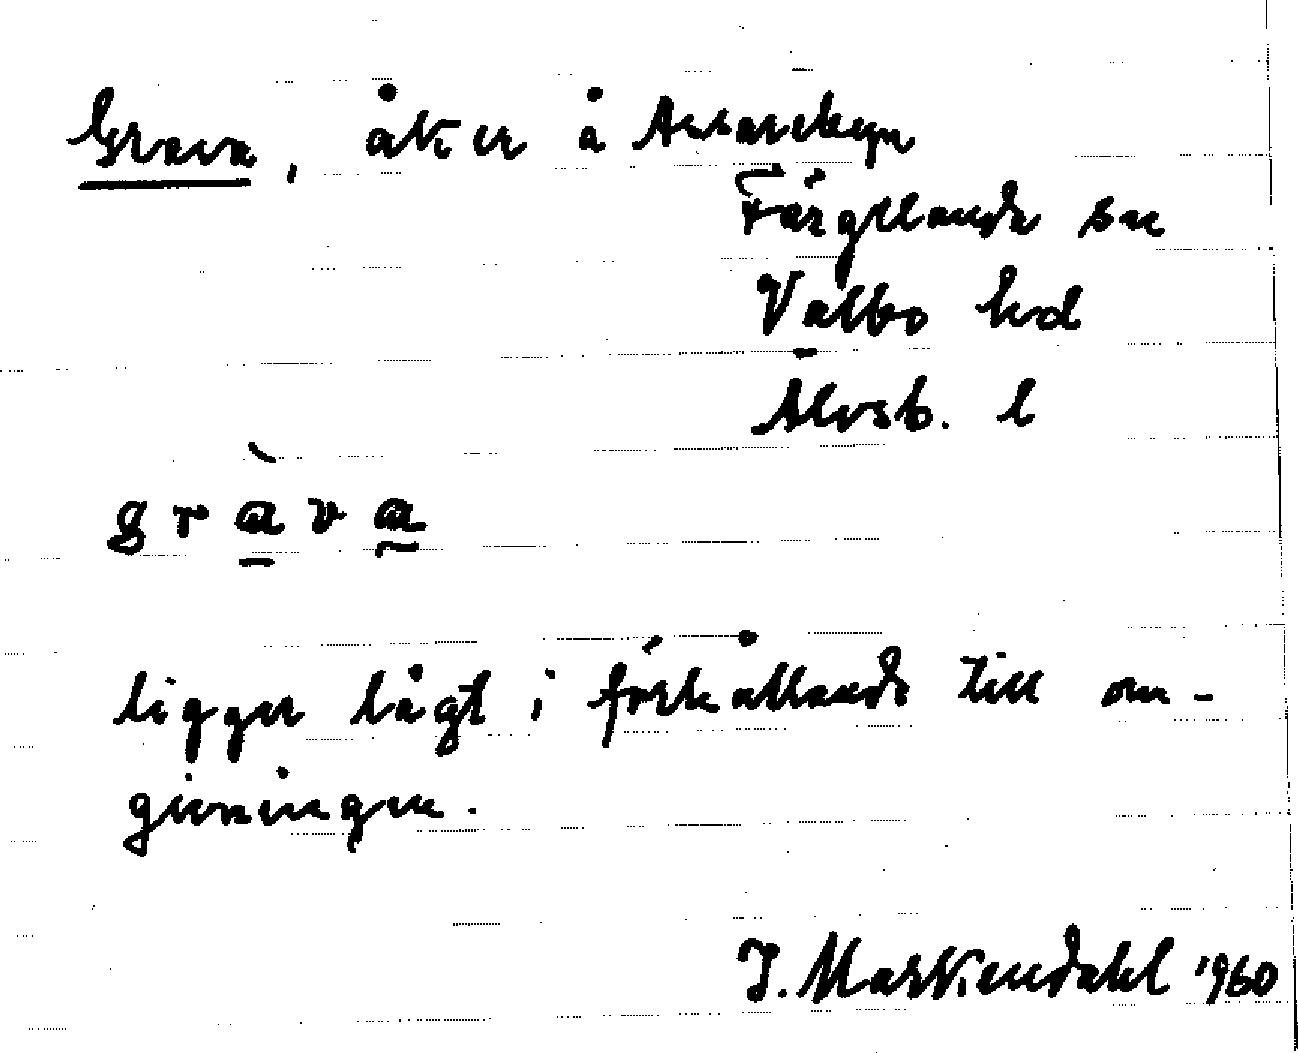 Grava, åker å Assarebyn
Färgelanda sn
Valbo hd
Älvsb. l
gràva
ligger lågt i förhållande till om-
givningen.
J. Markendahl 1960